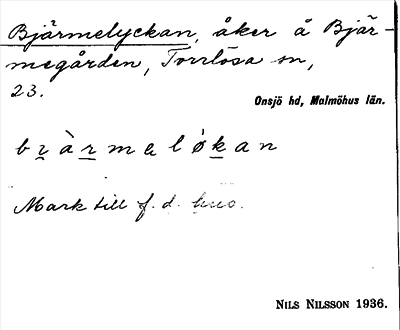 Bjärmelyckan, åker å Bjär-
megården, Torrlösa sn,
23.
Onsjö hd, Malmöhus län.
bɪ̯àr̠mɐløkan
Mark till f. d. hus.
NILS NILSSON 1936.